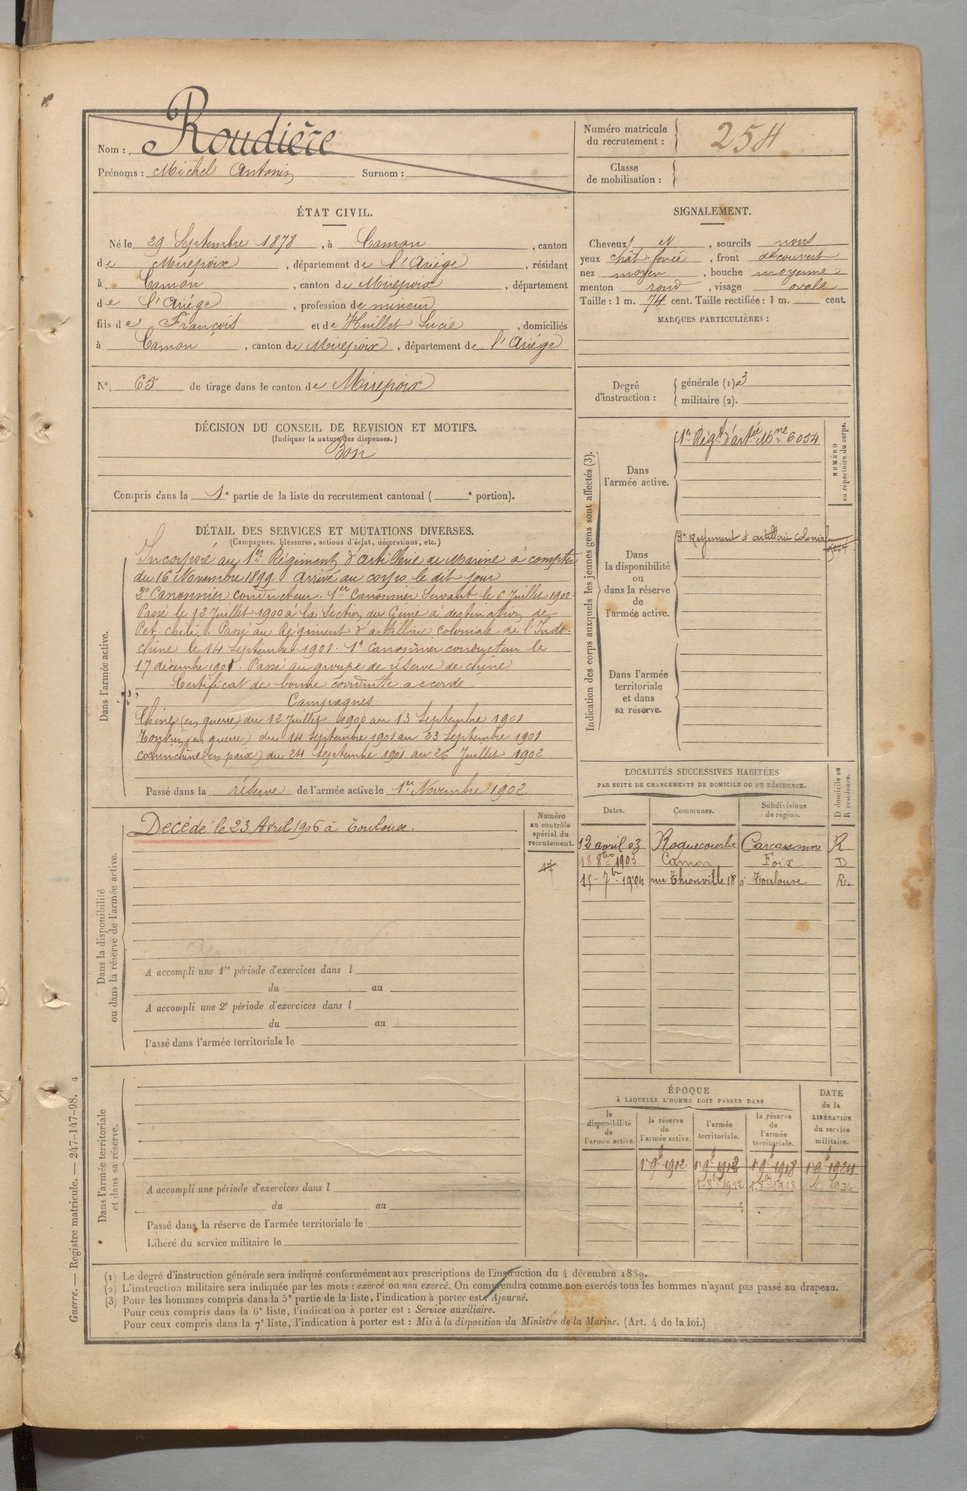 Nom : Roudière
Prénoms : Michel Antonin Surnom :
Numéro matricule du recrutement : 254
Classe de mobilisation :
ÉTAT CIVIL.
Né le 29 Septembre 1878, à Camon, canton
de Mirepoix, département de l'Ariége, résidant
à Camon, canton de Mirepoix, département
de l'Ariége, profession de mineur
fils de François et de Huillet Lucie, domiciliés
à Camon, canton de Mirepoix, département de l'Ariège
N° 65 de tirage dans le canton de Mirepoix
SIGNALEMENT.
Cheveux et, sourcils noirs
yeux chât. foncé, front découvert
nez moyen, bouche moyenne
menton rond, visage ovale
Taille : 1 m. 74 cent. Taille rectifiée : 1 m. cent.
MARQUES PARTICULIÈRES :
Degré d'instruction : générale (1) 3
militaire (2).
DÉCISION DU CONSEIL DE REVISION ET MOTIFS.
(Indiquer la nature des dispenses.)
Bon
Compris dans la 1e partie de la liste du recrutement cantonal ( e portion).
DÉTAIL DES SERVICES ET MUTATIONS DIVERSES.
(Campagnes, blessures, actions d'éclat, décorations, etc.)
Dans l'armée active.
Incorporé au 1er Régiment d'artillerie de Marine à compter
du 16 Novembre 1899. Arrivé au corps le dit jour
2e Canonnier conducteur. 1er Canonnier Servant le 6 Juillet 1900
Passé le 12 Juillet 1900 à la Section du Génie à destination de
Pet-chéli. Passé au Régiment d'artillerie coloniale de l'Indo-
chine le 14 Septembre 1901. 1e Canonnier conducteur le
17 décembre 1901. Passé au groupe de réserve de chine
Certificat de bonne conduite accordé
Campagnes
Chine (en guerre) du 12 Juillet 1900 au 13 Septembre 1901
Tonkin (en guerre) du 14 Septembre 1901 au 23 Septembre 1901
cochinchine (en paix) du 24 Septembre 1901 au 26 Juillet 1902
Passé dans la réserve de l'armée active le 1er Novembre 1902
Indication des corps auxquels les jeunes gens sont affectés (3).
NUMÉRO au répertoire du corps.
Dans l'armée active.
1er Régt d'artie Mne 6054
Dans la disponibilité ou dans la réserve de l'armée active.
3e Régiment d'artillerie Coloniale
Dans l'armée territoriale et dans sa réserve.
Dans la disponibilité ou dans la réserve de l'armée active.
Décédé le 23 Avril 1906 à Toulouse.
Numéro au contrôle spécial du recrutement.
A accompli une 1re période d'exercices dans l
du au
A accompli une 2e période d'exercices dans l
du au
Passé dans l'armée territoriale le
LOCALITÉS SUCCESSIVES HABITÉES
PAR SUITE DE CHANGEMENTS DE DOMICILE OU DE RÉSIDENCE.
Dates. Communes. Subdivisions de région. D domicile ou R résidence.
12 avril 03 Roquecourbe Carcassonne R
18 8bre 1903 Camon Foix D
15 - 7bre - 1904 rue Thionville 18 à Toulouse R.
Dans l'armée territoriale et dans sa réserve.
A accompli une période d'exercices dans l
du au
Passé dans la réserve de l'armée territoriale le
Libéré du service militaire le
ÉPOQUE
À LAQUELLE L'HOMME DOIT PASSER DANS
la disponibilité de l'armée active. la réserve de l'armée active. l'armée territoriale. la réserve de l'armée territoriale. DATE de la LIBÉRATION du service militaire.
1 9b 1902 1 9b 1912 1 9b 1918 1 9b 1924
(1) Le degré d'instruction générale sera indiqué conformément aux prescriptions de l'instruction du 4 décembre 1889.
(2) L'instruction militaire sera indiquée par les mots : exercé ou non exercé. On comprendra comme non exercés tous les hommes n'ayant pas passé au drapeau.
(3) Pour les hommes compris dans la 5e partie de la liste, l'indication à porter est : Ajourné.
Pour ceux compris dans la 6e liste, l'indication à porter est : Service auxiliaire.
Pour ceux compris dans la 7e liste, l'indication à porter est : Mis à la disposition du Ministre de la Marine. (Art. 4 de la loi.)
Guerre. — Registre matricule. — 247-147-98. 4